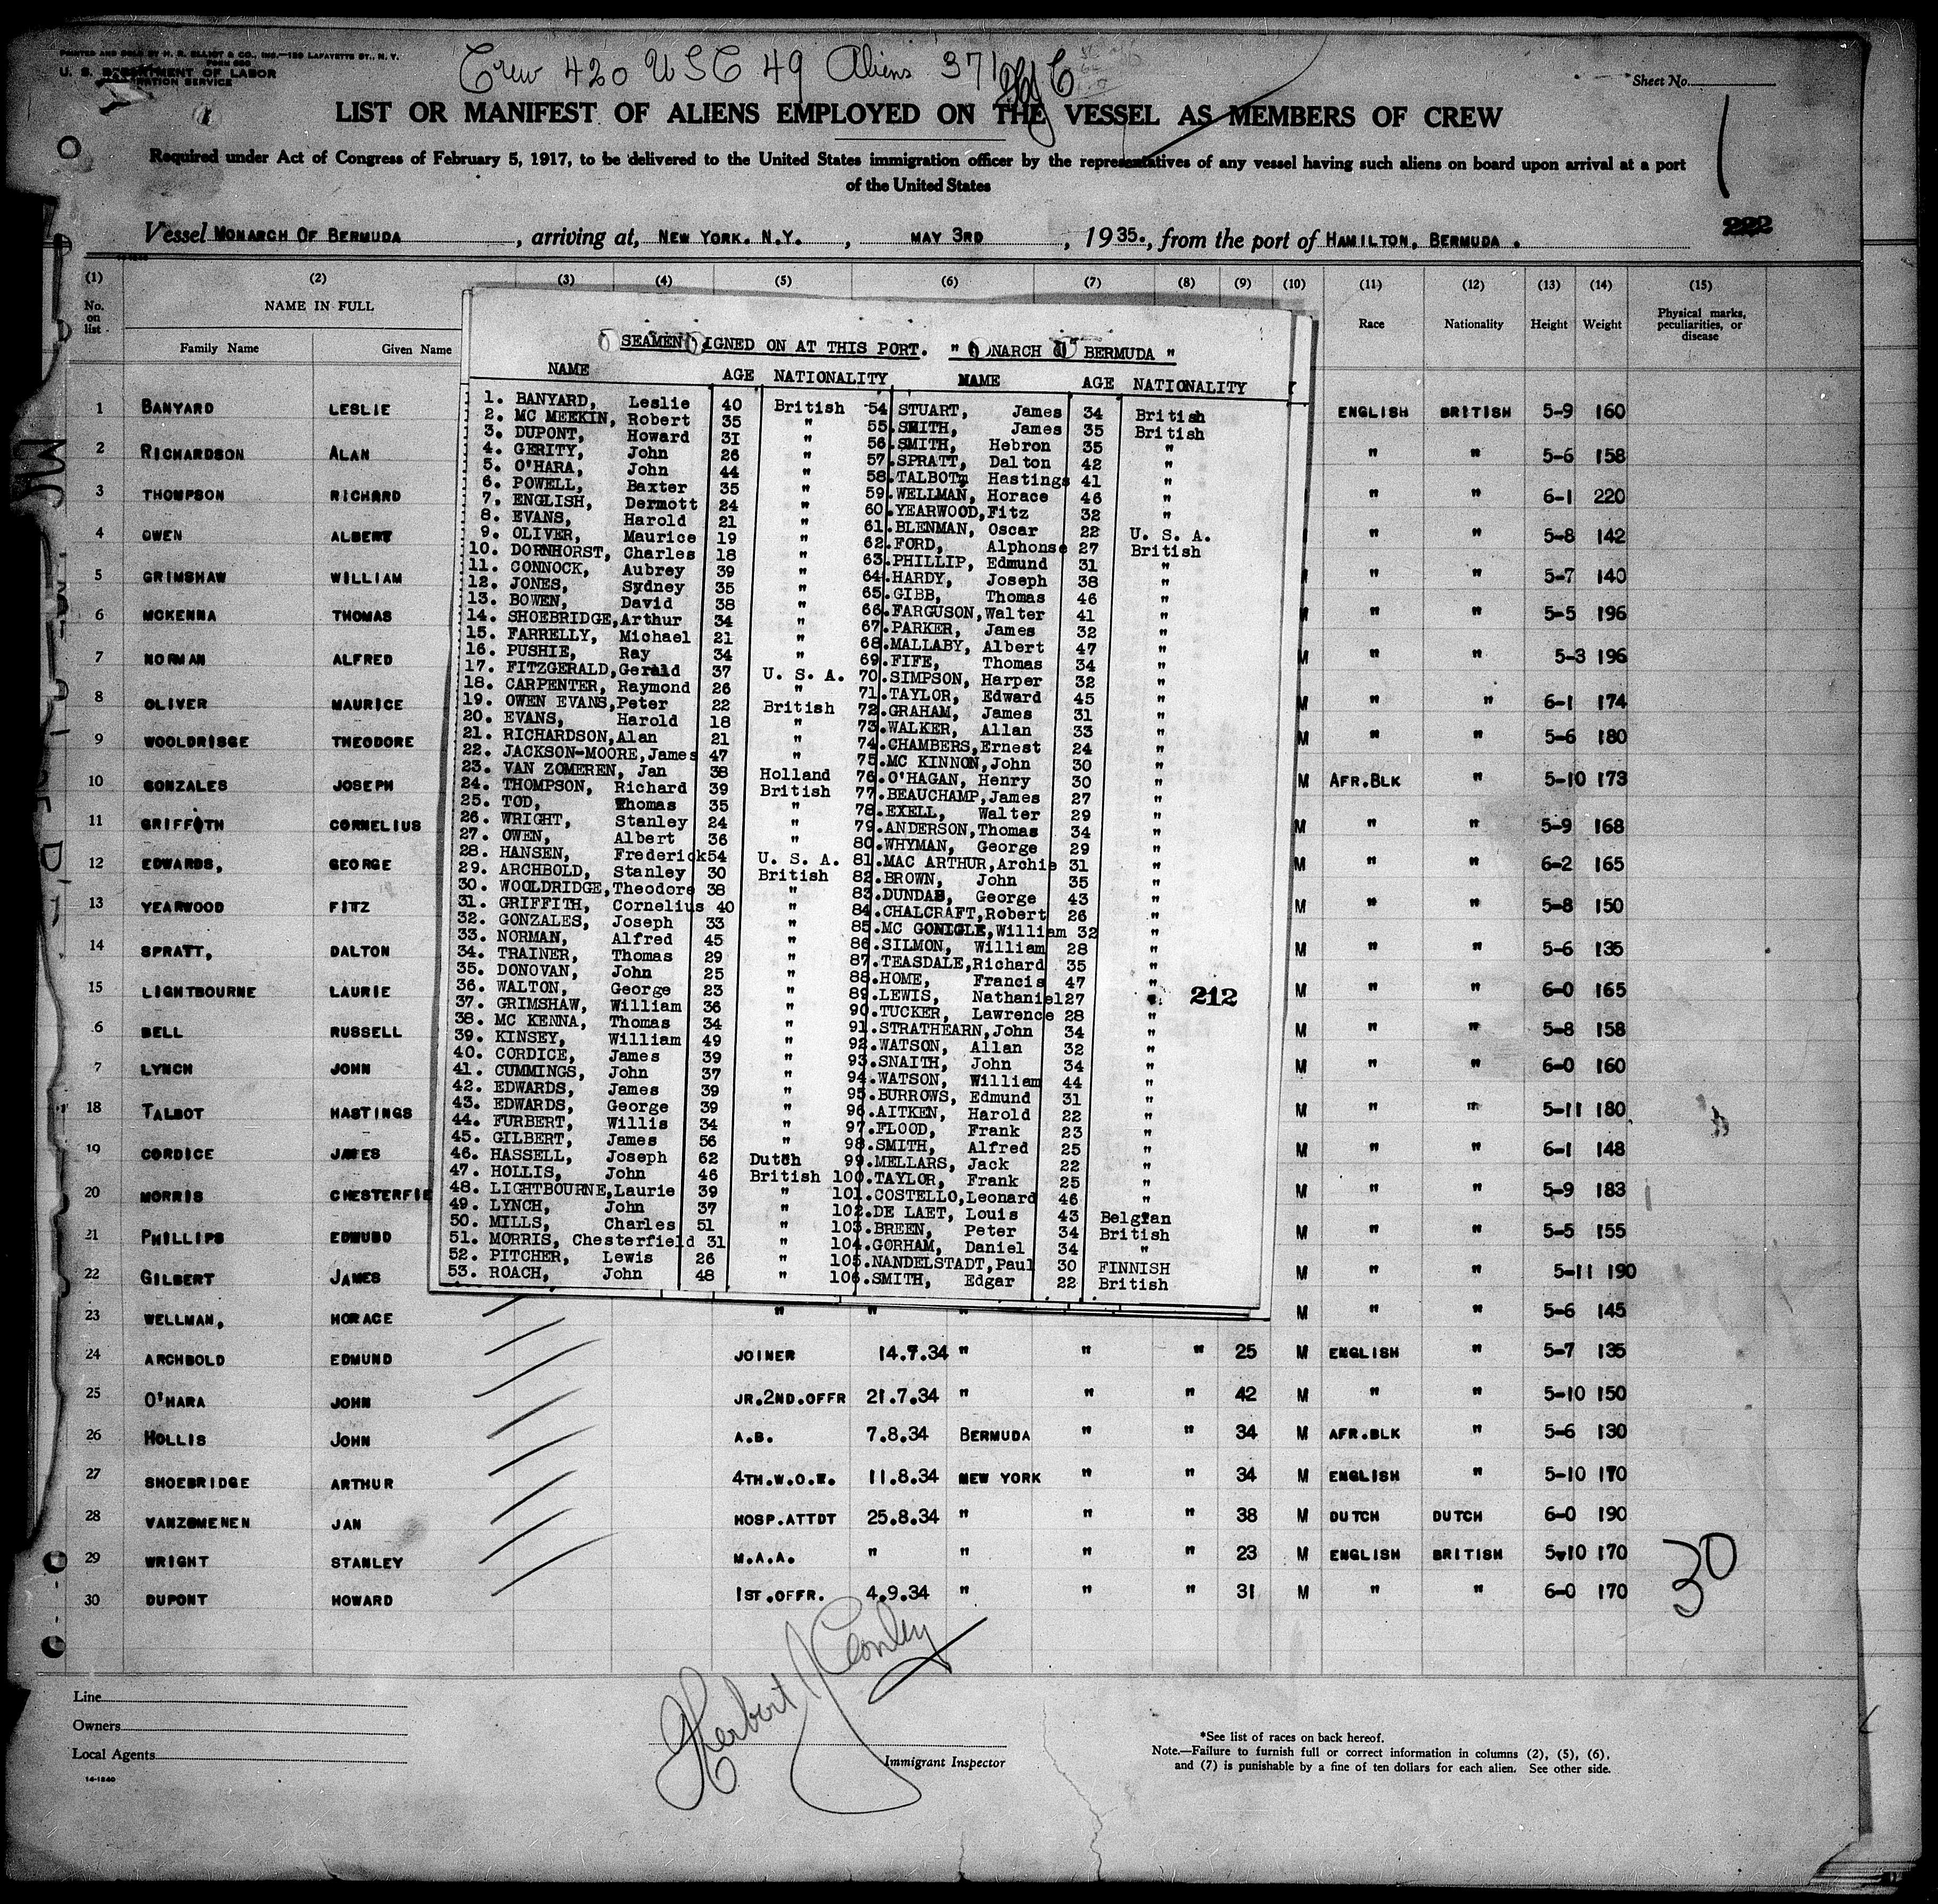 PRINTED AND SOLD BY H. R. ELLIOT & CO., INC.—129 LAFAYETTE ST., N. Y.
FORM 680
U. S. DEPARTMENT OF LABOR
Crew 420 USC 49 Aliens 371
Sheet No.
1
LIST OR MANIFEST OF ALIENS EMPLOYED ON THE VESSEL AS MEMBERS OF CREW
Required under Act of Congress of February 5, 1917, to be delivered to the United States immigration officer by the representatives of any vessel having such aliens on board upon arrival at a port
of the United States
222
Vessel MONARCH OF BERMUDA, arriving at, NEW YORK. N.Y., MAY 3RD, 1935., from the port of HAMILTON, BERMUDA.
(1) (2) (3) (4) (5) (6) (7) (8) (9) (10) (11) (12) (13) (14) (15)
No. on list NAME IN FULL Race Nationality Height Weight Physical marks, peculiarities, or disease
Family Name Given Name
SEAMEN SIGNED ON AT THIS PORT. "MONARCH OF BERMUDA"
NAME AGE NATIONALITY NAME AGE NATIONALITY
1. BANYARD, Leslie 40 British 54. STUART, James 34 British
2. MC MEEKIN, Robert 35 " 55. SMITH, James 35 British
3. DUPONT, Howard 31 " 56. SMITH, Hebron 35 "
4. GERITY, John 26 " 57. SPRATT, Dalton 42 "
5. O'HARA, John 44 " 58. TALBOT, Hastings 41 "
6. POWELL, Baxter 35 " 59. WELLMAN, Horace 46 "
7. ENGLISH, Dermott 24 " 60. YEARWOOD, Fitz 32 "
8. EVANS, Harold 21 " 61. BLENMAN, Oscar 22 U. S. A.
9. OLIVER, Maurice 19 " 62. FORD, Alphonse 27 British
10. DORNHORST, Charles 18 " 63. PHILLIP, Edmund 31 "
11. CONNOCK, Aubrey 39 " 64. HARDY, Joseph 38 "
12. JONES, Sydney 35 " 65. GIBB, Thomas 46 "
13. BOWEN, David 38 " 66. FARGUSON, Walter 41 "
14. SHOEBRIDGE, Arthur 34 " 67. PARKER, James 32 "
15. FARRELLY, Michael 21 " 68. MALLABY, Albert 47 "
16. PUSHIE, Ray 34 " 69. FIFE, Thomas 34 "
17. FITZGERALD, Gerald 37 U. S. A. 70. SIMPSON, Harper 32 "
18. CARPENTER, Raymond 26 " 71. TAYLOR, Edward 45 "
19. OWEN EVANS, Peter 22 British 72. GRAHAM, James 31 "
20. EVANS, Harold 18 " 73. WALKER, Allan 33 "
21. RICHARDSON, Alan 21 " 74. CHAMBERS, Ernest 24 "
22. JACKSON-MOORE, James 47 " 75. MC KINNON, John 30 "
23. VAN ZOMEREN, Jan 38 Holland 76. O'HAGAN, Henry 30 "
24. THOMPSON, Richard 39 British 77. BEAUCHAMP, James 27 "
25. TOD, Thomas 35 " 78. EXELL, Walter 29 "
26. WRIGHT, Stanley 24 " 79. ANDERSON, Thomas 34 "
27. OWEN, Albert 36 " 80. WHYMAN, George 29 "
28. HANSEN, Frederick 54 U. S. A. 81. MAC ARTHUR, Archie 31 "
29. ARCHBOLD, Stanley 30 British 82. BROWN, John 35 "
30. WOOLDRIDGE, Theodore 38 " 83. DUNDAS, George 43 "
31. GRIFFITH, Cornelius 40 " 84. CHALCRAFT, Robert 26 "
32. GONZALES, Joseph 33 " 85. MC GONIGLE, William 32 "
33. NORMAN, Alfred 45 " 86. SILMON, William 28 "
34. TRAINER, Thomas 29 " 87. TEASDALE, Richard 35 "
35. DONOVAN, John 25 " 88. HOME, Francis 47 "
36. WALTON, George 23 " 89. LEWIS, Nathaniel 27 " 212
37. GRIMSHAW, William 36 " 90. TUCKER, Lawrence 28 "
38. MC KENNA, Thomas 34 " 91. STRATHEARN, John 34 "
39. KINSEY, William 49 " 92. WATSON, Allan 32 "
40. CORDICE, James 39 " 93. SNAITH, John 34 "
41. CUMMINGS, John 37 " 94. WATSON, William 44 "
42. EDWARDS, James 39 " 95. BURROWS, Edmund 31 "
43. EDWARDS, George 39 " 96. AITKEN, Harold 22 "
44. FURBERT, Willis 34 " 97. FLOOD, Frank 23 "
45. GILBERT, James 56 " 98. SMITH, Alfred 25 "
46. HASSELL, Joseph 62 Dutch 99. MELLARS, Jack 22 "
47. HOLLIS, John 46 British 100. TAYLOR, Frank 25 "
48. LIGHTBOURNE, Laurie 39 " 101. COSTELLO, Leonard 46 "
49. LYNCH, John 37 " 102. DE LAET, Louis 43 Belgian
50. MILLS, Charles 51 " 103. BREEN, Peter 34 British
51. MORRIS, Chesterfield 31 " 104. GORHAM, Daniel 34 "
52. PITCHER, Lewis 26 " 105. NANDELSTADT, Paul 30 FINNISH
53. ROACH, John 48 " 106. SMITH, Edgar 22 British
1 BANYARD LESLIE ENGLISH BRITISH 5-9 160
2 RICHARDSON ALAN " " 5-6 158
3 THOMPSON RICHARD " " 6-1 220
4 OWEN ALBERT " " 5-8 142
5 GRIMSHAW WILLIAM " " 5-7 140
6 MCKENNA THOMAS M " " 5-5 196
7 NORMAN ALFRED M " " 5-3 196
8 OLIVER MAURICE M " " 6-1 174
9 WOOLDRISGE THEODORE M " " 5-6 180
10 GONZALES JOSEPH M AFR.BLK " 5-10 173
11 GRIFFITH CORNELIUS M " " 5-9 168
12 EDWARDS, GEORGE M " " 6-2 165
13 YEARWOOD FITZ M " " 5-8 150
14 SPRATT, DALTON M " " 5-6 135
15 LIGHTBOURNE LAURIE M " " 6-0 165
6 BELL RUSSELL M " " 5-8 158
7 LYNCH JOHN M " " 6-0 160
18 TALBOT HASTINGS M " " 5-11 180
19 CORDICE JAMES M " " 6-1 148
20 MORRIS CHESTERFIE M " " 5-9 183
21 PHILLIPS EDMUND M " " 5-5 155
22 GILBERT JAMES M " " 5-11 190
23 WELLMAN, HORACE " " " M " " 5-6 145
24 ARCHBOLD EDMUND JOINER 14.7.34 " " " 25 M ENGLISH " 5-7 135
25 O'HARA JOHN JR.2ND.OFFR 21.7.34 " " " 42 M " " 5-10 150
26 HOLLIS JOHN A.B. 7.8.34 BERMUDA " " 34 M AFR.BLK " 5-6 130
27 SHOEBRIDGE ARTHUR 4TH.W.O.W. 11.8.34 NEW YORK " " 34 M ENGLISH " 5-10 170
28 VANZOMENEN JAN HOSP.ATTDT 25.8.34 " " " 38 M DUTCH DUTCH 6-0 190
29 WRIGHT STANLEY M.A.A. " " " " 23 M ENGLISH BRITISH 5-10 170
30 DUPONT HOWARD 1ST.OFFR. 4.9.34 " " " 31 M " " 6-0 170
30
Herbert J Conley
Line
Owners
Local Agents
14-1240
Immigrant Inspector
*See list of races on back hereof.
Note.—Failure to furnish full or correct information in columns (2), (5), (6),
and (7) is punishable by a fine of ten dollars for each alien. See other side.